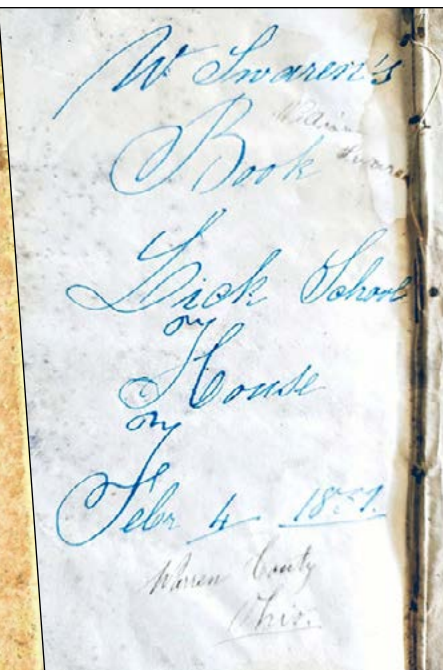 W Swaren's
William
Swaren
Book
Lick School
House
Febr 4 18
Warren County
Ohio.